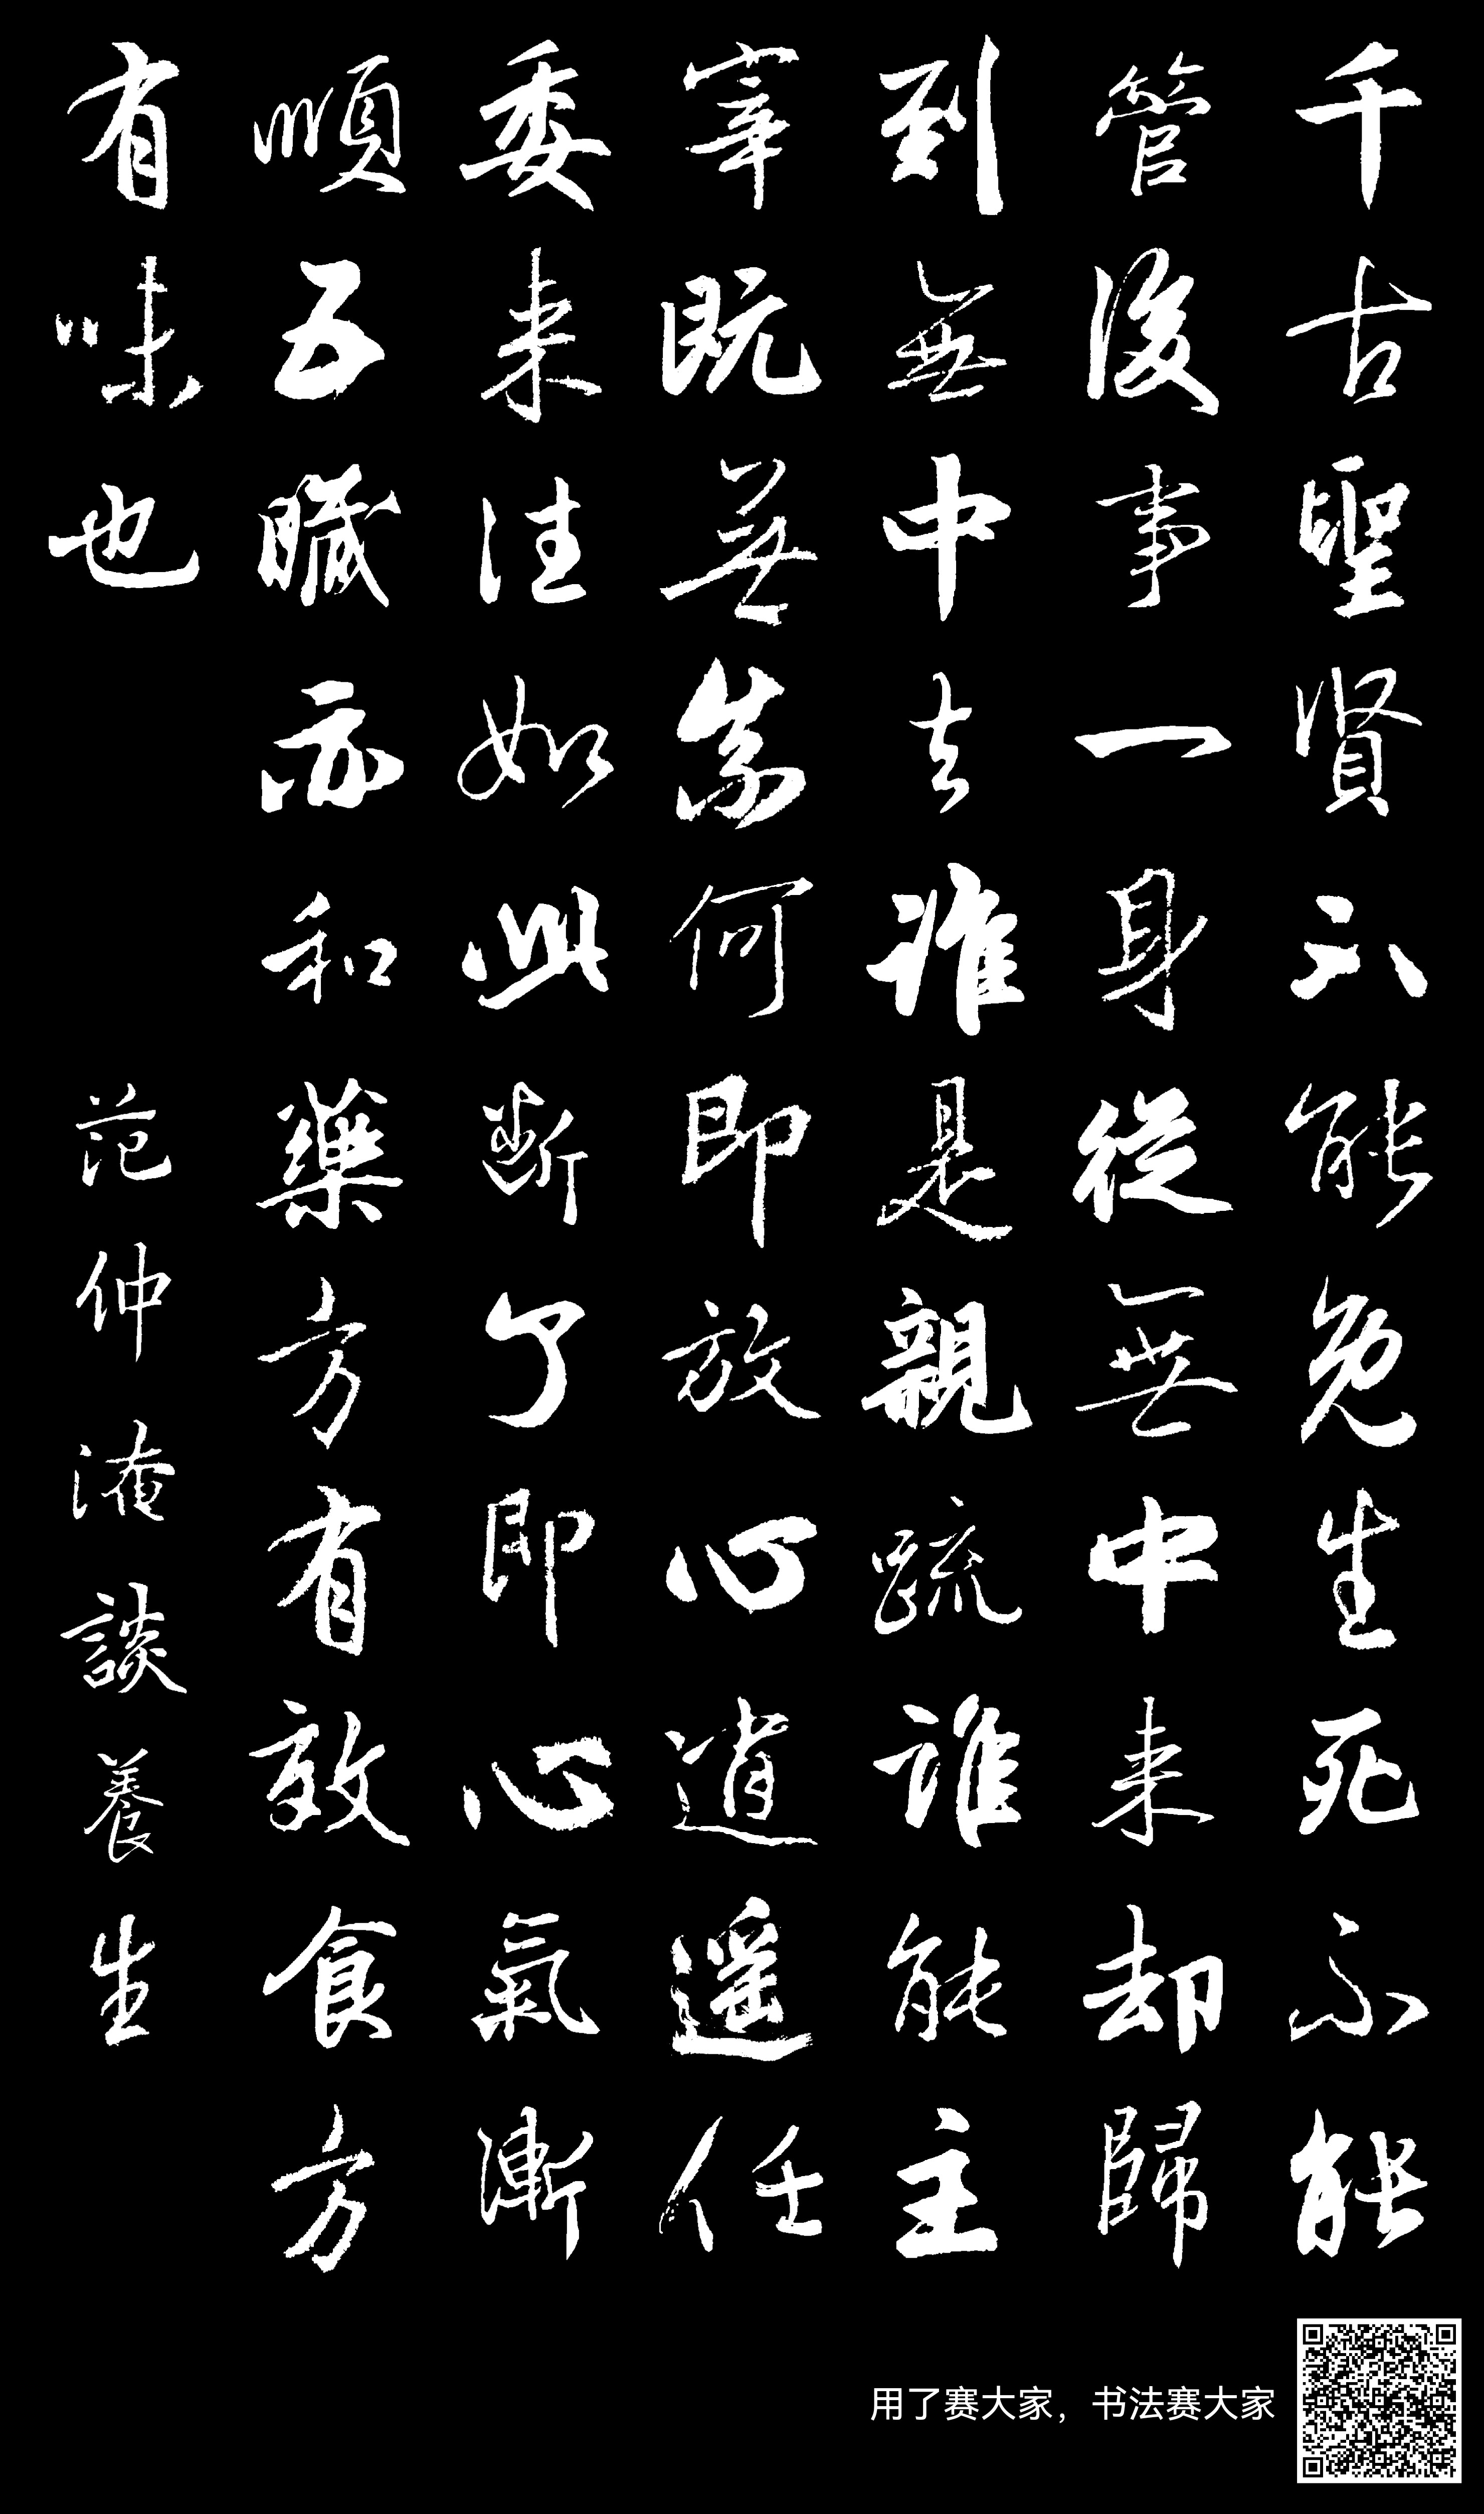 千古聖賢不能免生死不能
管後事一身從無中來却歸
到無中去誰是親疏誰能主
宰既無奈何即放心逍遥任
委來往如此断了即心氣漸
順五臟亦和藥方有效食方
有味也
范仲淹談養生
用了赛大家，书法赛大家